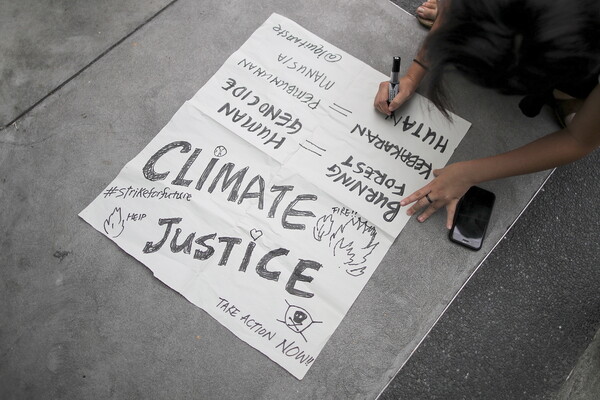 CLIMATE
JUSTICE
#strikeforfuture
HELP
FIRE!!
TAKE ACTION NOW!!
BURNING
FOREST
=
HUMAN
GENOCIDE
KEBAKARAN
HUTAN
=
PEMBUNUHAN
MANUSIA